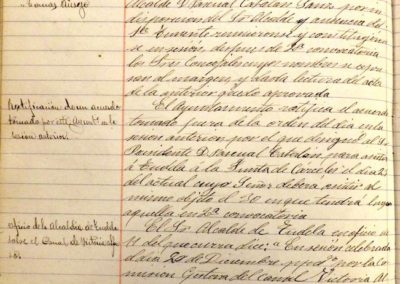 Tomás Ainzo
Alcalde D. Pascual Catalán Sanz por in
disposición del Sr. Alcalde y ausencia del
1er. Teniente reunieronse y constituyéron
se en sesión, después de 2ª convocatoria
los Sres. Concejales cuyos nombres se expre
san al margen, y dada lectura del acta
de la anterior quedó aprovada
Ratificación de un acuerdo
tomado por este Ayuntº en la
sesión anterior.
El Ayuntamiento ratifica el acuerdo
tomado fuera de la orden del dia en la
sesion anterior por el que designó al Sr.
Presidente D. Pascual Catalán para asistir
á Tudela á la Junta de Carceles el dia 2
del actual cuyo Señor deberá asistir al
mismo objeto el 30 en que tendrá lugar
aquella en 2ª convocatoria.
Oficio de la Alcaldía de Tudela
sobre el Canal de Victoria Alfon
so.
El Sr. Alcalde de Tudela en oficio
11 del que cursa dice: "En sesión celebrada
el dia 28 de Diciembre ppdo. por la Co
mision Gestora del canal Victoria Al